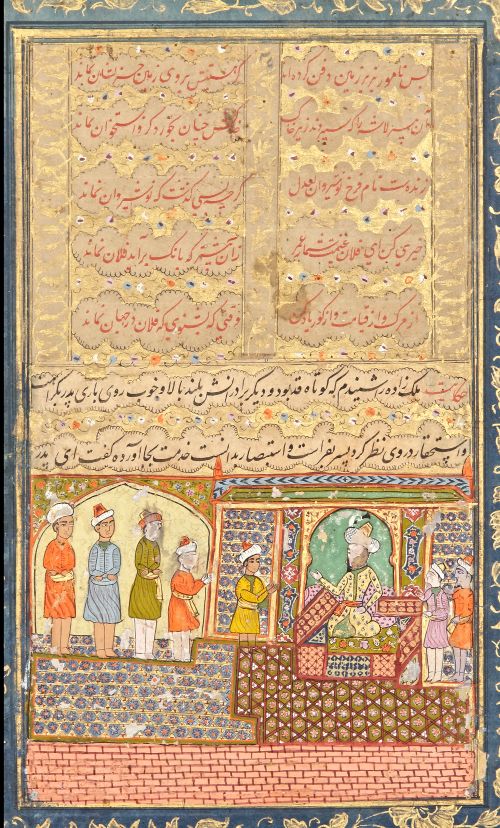 بس نامور بزیر زمین دفن کرده اند کز هستیش بروی زمین نشان نماند
آن پیر لاشه را که سپردند زیر خاک خاکش چنان بخورد کزو استخوان نماند
زنده است نام فرخ نوشیروان بعدل گرچه بسی گذشت که نوشیروان نماند
خیری کن ای فلان و غنیمت شمار عمر زان پیشتر که بانگ برآید فلان نماند
از مرگ و از قیامت و از گور یاد کن وقتی که بشنوی که فلان از جهان نماند
حکایت ملک زاده شنیدم که کوتاه قد بود و دیگر برادرانش بلند بالا و خوب روی باری پدر بکراهت
و استحقار در وی نظر کرد پسر بفراست و استبصار بدانست خدمت بجا آورده گفت ای پدر